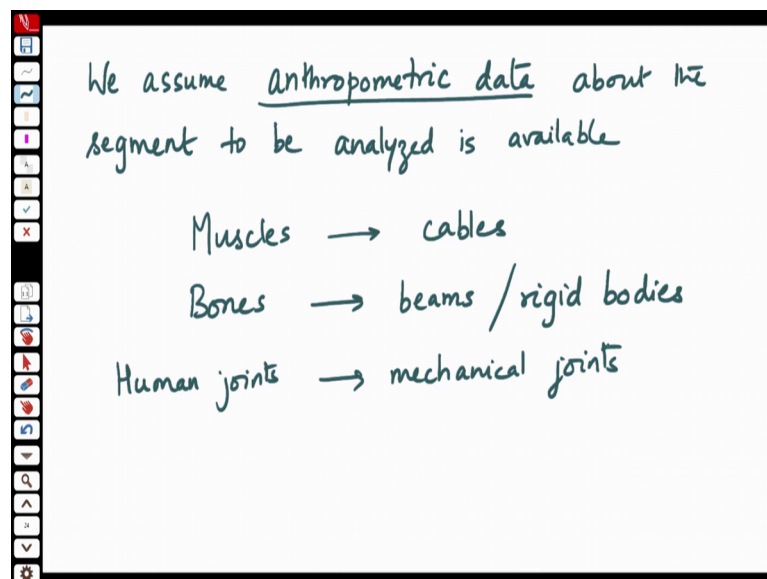 We assume anthropometric data about the
segment to be analyzed is available
Muscles → cables
Bones → beams / rigid bodies
Human joints → mechanical joints
24